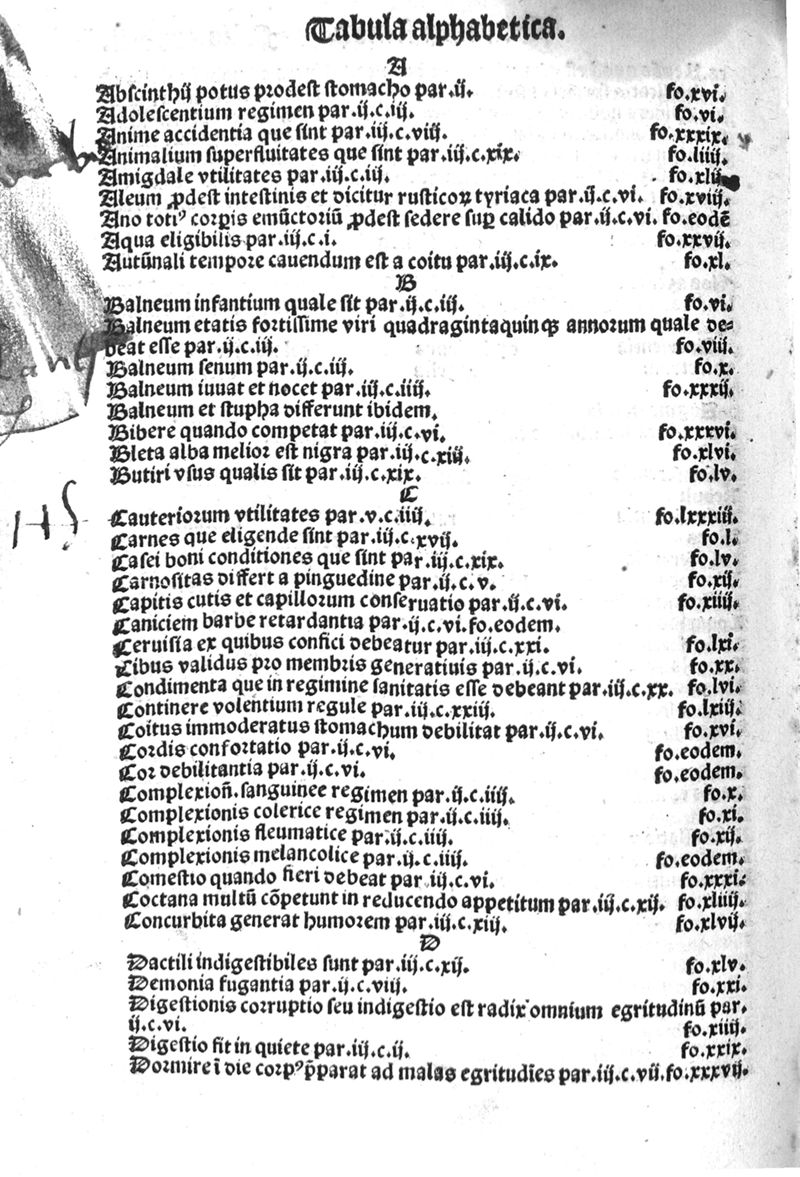 Tabula alphabetica.
A
Abscinthij potus prodest stomacho par.ij. fo.xvi.
Adolescentium regimen par.ij.c.iij. fo.vi.
Anime accidentia que sint par.iij.c.viij. fo.xxxix.
Animalium superfluitates que sint par.iij.c.xix. fo.liiij.
Amigdale vtilitates par.iij.c.iij. fo.xlij
Aleum ꝓdest intestinis et dicitur rusticoꝝ tyriaca par.ij.c.vi. fo.xviij.
Ano totiꝰ corꝑis emūctoriū ꝓdest sedere suꝑ calido par.ij.c.vi. fo.eodē
Aqua eligibilis par.iij.c.i. fo.xxvij.
Autūnali tempore cauendum est a coitu par.iij.c.ix. fo.xl.
B
Balneum infantium quale sit par.ij.c.iij. fo.vi.
Balneum etatis fortissime viri quadragintaquinqꝫ annorum quale de-
beat esse par.ij.c.iij. fo.viij.
Balneum senum par.ij.c.iij. fo.x.
Balneum iuuat et nocet par.iij.c.iiij. fo.xxxij.
Balneum et stupha differunt ibidem.
Bibere quando competat par.iij.c.vi. fo.xxxvi.
Bleta alba melior est nigra par.iij.c.xiij. fo.xlvi.
Butiri vsus qualis sit par.iij.c.xix. fo.lv.
C
Cauteriorum vtilitates par.v.c.iiij. fo.lxxxiij.
Carnes que eligende sint par.iij.c.xvij. fo.l.
Casei boni conditiones que sint par.iij.c.xix. fo.lv.
Carnositas differt a pinguedine par.ij.c.v. fo.xij.
Capitis cutis et capillorum conseruatio par.ij.c.vi. fo.xiiij.
Caniciem barbe retardantia par.ij.c.vi.fo.eodem.
Ceruisia ex quibus confici debeatur par.iij.c.xxi. fo.lxi.
Cibus validus pro membris generatiuis par.ij.c.vi. fo.xx.
Condimenta que in regimine sanitatis esse debeant par.iij.c.xx. fo.lvi.
Continere volentium regule par.iij.c.xxiij. fo.lxiij.
Coitus immoderatus stomachum debilitat par.ij.c.vi. fo.xvi.
Cordis confortatio par.ij.c.vi. fo.eodem.
Cor debilitantia par.ij.c.vi. fo.eodem.
Complexioñ.sanguinee regimen par.ij.c.iiij. fo.x.
Complexionis colerice regimen par.ij.c.iiij. fo.xi.
Complexionis fleumatice par.ij.c.iiij. fo.xij.
Complexionis melancolice par.ij.c.iiij. fo.eodem.
Comestio quando fieri debeat par.iij.c.vi. fo.xxxi.
Coctana multū cōpetunt in reducendo appetitum par.iij.c.xij. fo.xliiij.
Concurbita generat humorem par.iij.c.xiij. fo.xlvij.
D
Dactili indigestibiles sunt par.iij.c.xij. fo.xlv.
Demonia fugantia par.ij.c.viij. fo.xxi.
Digestionis corruptio seu indigestio est radix omnium egritudinū par.
ij.c.vi. fo.xiiij.
Digestio fit in quiete par.iij.c.ij. fo.xxix.
Dormire ī die corpꝰ p̄parat ad malas egritudīes par.iij.c.vij.fo.xxxvij.